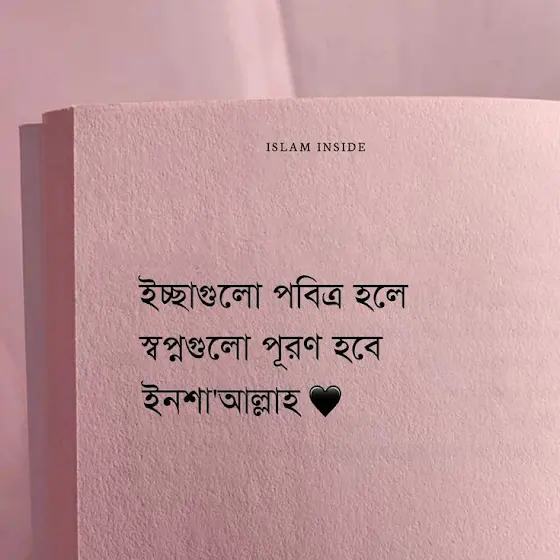 ISLAM INSIDE
ইচ্ছাগুলো পবিত্র হলে
স্বপ্নগুলো পূরণ হবে
ইনশা'আল্লাহ 🖤